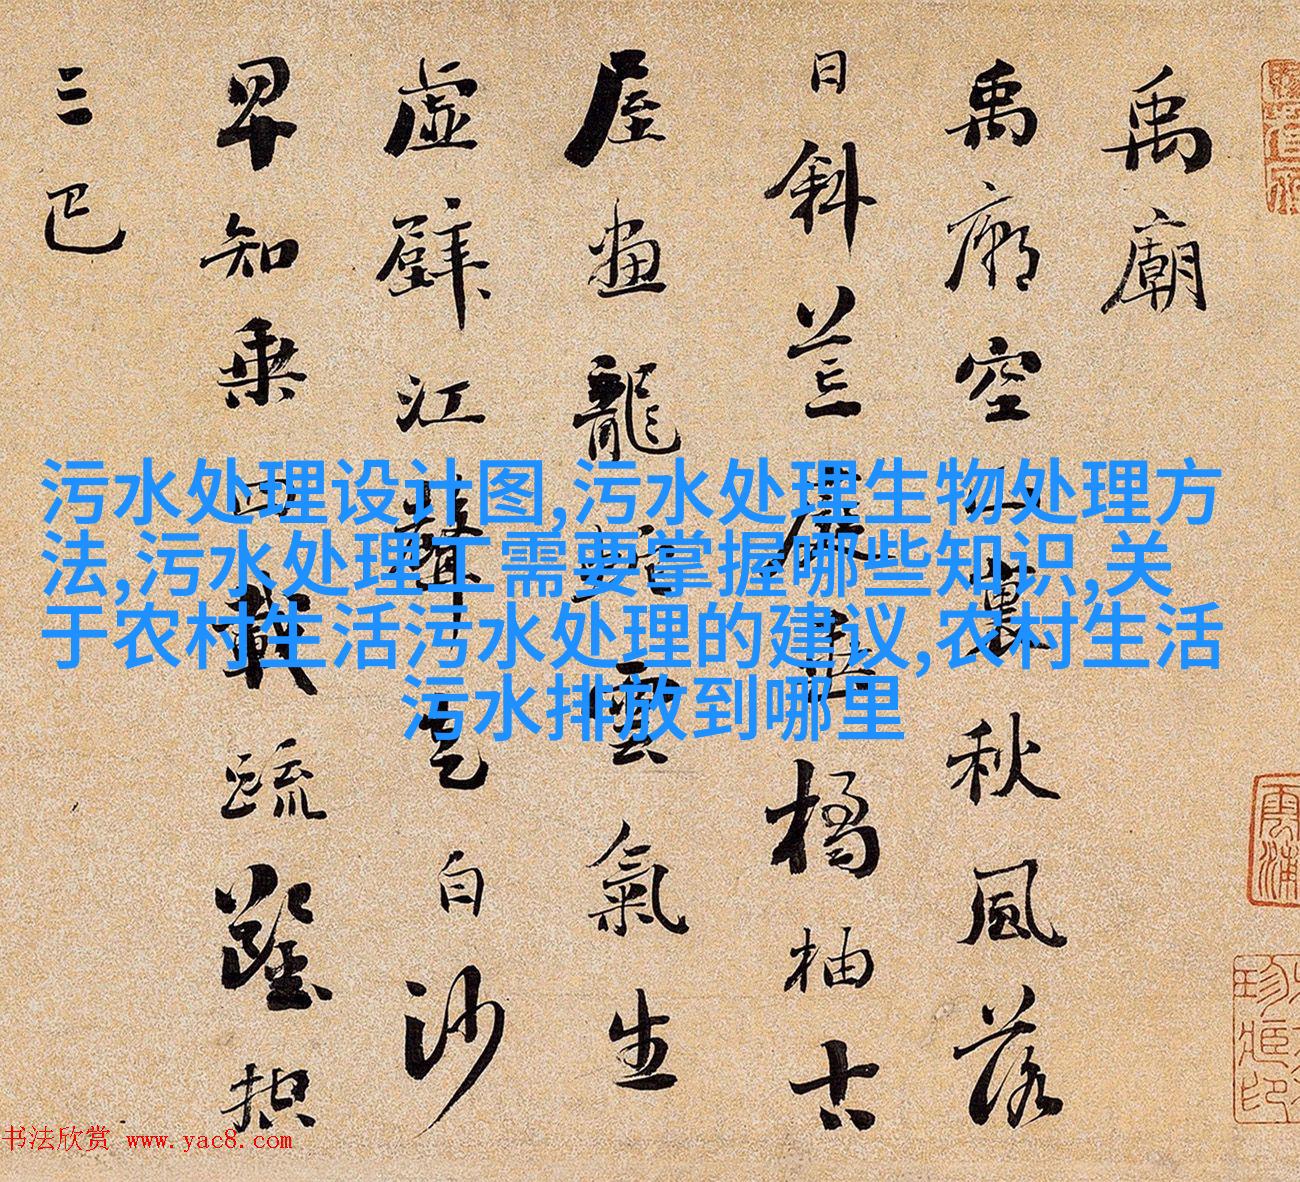 禹廟
禹廟空山裏秋風落
日斜荒庭垂橘柚古
屋畫龍蛇雲氣生
虛壁江聲走白沙
早知乘四載疏鑿控
三巴
污水处理设计图,污水处理生物处理方
法,污水处理工需要掌握哪些知识,关
于农村生活污水处理的建议,农村生活
污水排放到哪里
书法欣赏 www.yac8.com